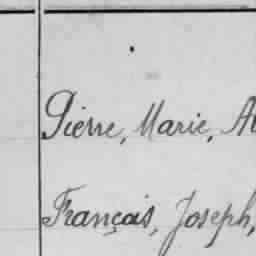 Pierre, Marie, Al
François, Joseph,